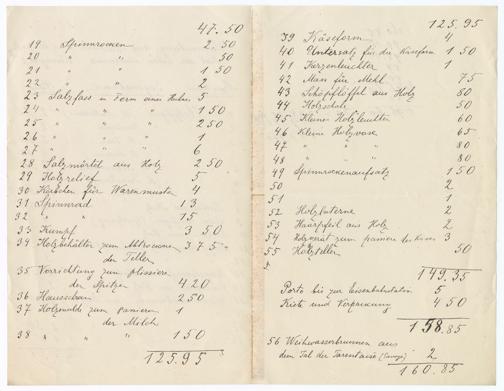 47.50
19 Spinnrocken 2.50
20 " " 50
21 " " 1 50
22 " " 2
23 Salzfass in Form einer 5
24 " " " 1 50
25 " " " 2 50
26 " " " 1
27 " " " 6
28 Salzmörtel aus Holz 2 50
29 Holzrelief 5
30 für Warenmuster 4
31 Spinnrad 1 3
32 " " 15
33 Kumpf 3 50
34 Holzbehälter zum Abtrocknen 3 75
der Teller
35 Vorrichtung zum plissiere
der Spitzen 4 20
36 2 50
37 zum 1
der Milch
38 " " " 1 50
125.95
125.95
39 Käseform 4
40 Untersatz für die Käseform 1 50
41 Kerzenleuchter 1
42 Mass für Mehl 75
43 Schöpflöffel aus Holz 80
44 Holzschale 50
45 Kleiner Holzleuchter 60
46 Kleine Holzvase 65
47 " " 80
48 " " 80
49 Spinnrockenaufsatz 1 50
50 2
51 1
52 Holzlaterne 2
53 Haarpfeil aus Holz 2
54 zum 3
55 Holzteller 50
149.35
Porto bis zur Eisenbahnstation 5
Kiste und Verpackung 4 50
158.85
56 Weihwasserbrunnen aus
dem Tal der Tarentaise 2
160.85